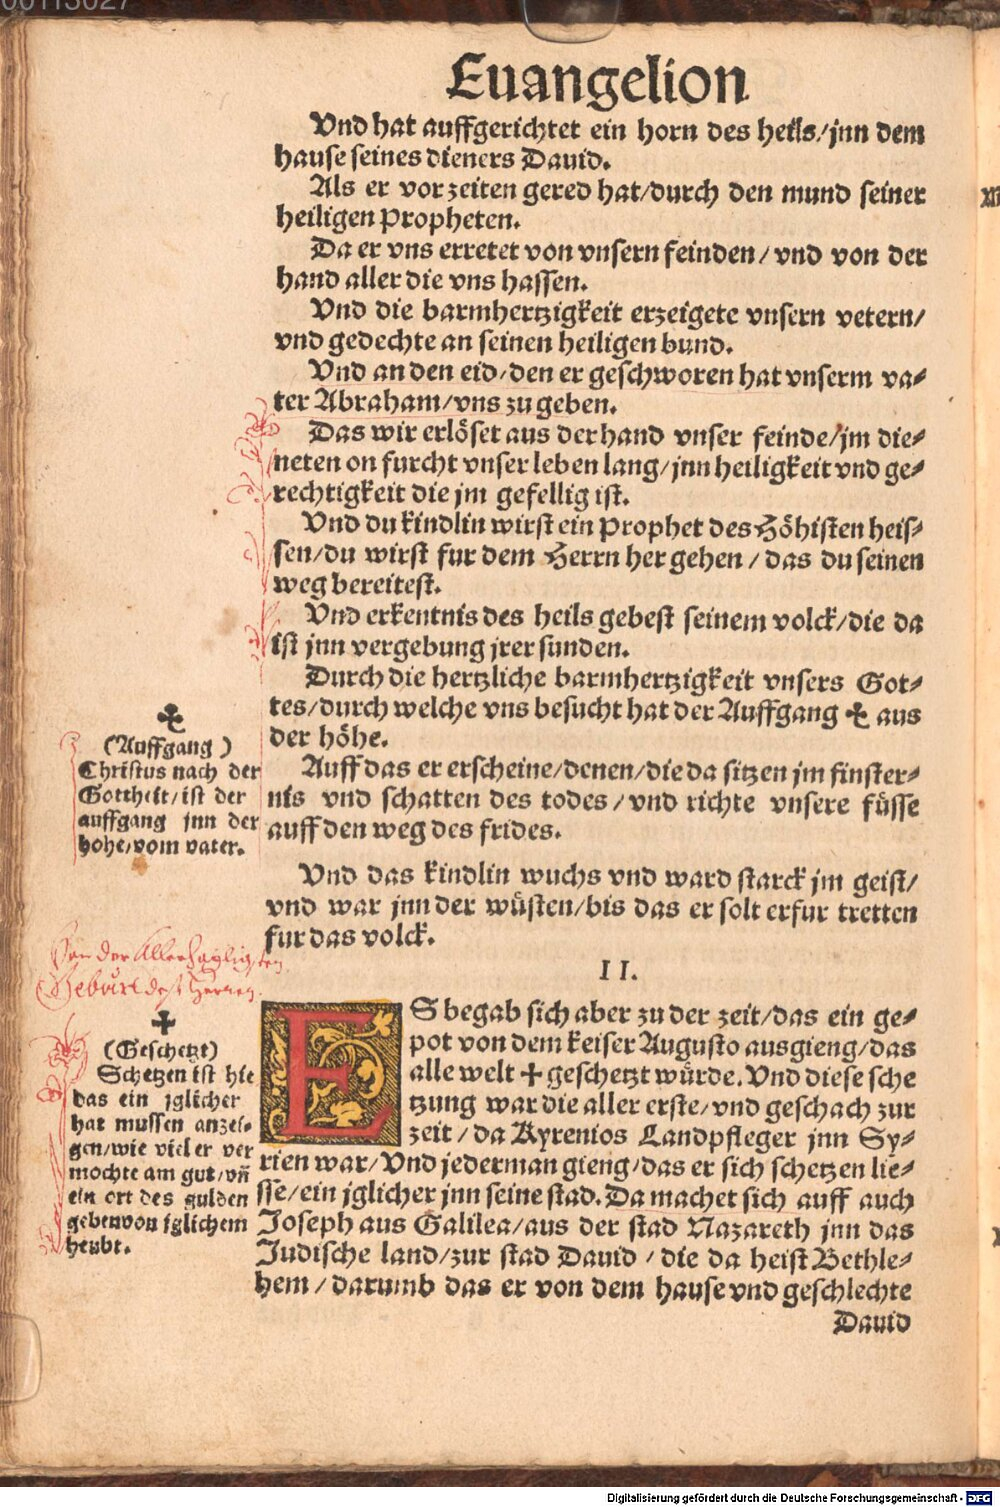 00113027
Euangelion
Vnd hat auffgerichtet ein horn des heils/jnn dem
hause seines dieners Dauid.
Als er vor zeiten gered hat/durch den mund seiner
heiligen Propheten.
Da er vns erretet von vnsern feinden/ vnd von der
hand aller die vns hassen.
Vnd die barmhertzigkeit erzeigete vnsern vetern/
vnd gedechte an seinen heiligen bund.
Vnd an den eid/den er geschworen hat vnserm va⸗
ter Abraham/vns zu geben.
Das wir erlöset aus der hand vnser feinde/jm die⸗
neten on furcht vnser leben lang/jnn heiligkeit vnd ge⸗
rechtigkeit die jm gefellig ist.
Vnd du kindlin wirst ein Prophet des Höhisten heis⸗
sen/du wirst fur dem Herrn her gehen/ das du seinen
weg bereitest.
Vnd erkentnis des heils gebest seinem volck/die da
ist jnn vergebung jrer sunden.
Durch die hertzliche barmhertzigkeit vnsers Got⸗
tes/durch welche vns besucht hat der Auffgang ✤ aus
der höhe.
Auff das er erscheine/denen/die da sitzen jm finster⸗
nis vnd schatten des todes/ vnd richte vnsere füsse
auff den weg des frides.
Vnd das kindlin wuchs vnd ward starck jm geist/
vnd war jnn der wüsten/bis das er solt erfur tretten
fur das volck.
✤
(Auffgang)
Christus nach der
Gottheit/ist der
auffgang jnn der
hohe/vom vater.
Von der Allerhayligsten
Geburt dess Herren.
II.
ES begab sich aber zu der zeit/das ein ge⸗
pot von dem keiser Augusto ausgieng/das
alle welt ✝ geschetzt würde. Vnd diese sche
tzung war die aller erste/vnd geschach zur
zeit/ da Kyrenios Landpfleger jnn Sy⸗
rien war/Vnd jederman gieng/das er sich schetzen lie⸗
sse/ein jglicher jnn seine stad. Da machet sich auff auch
Joseph aus Galilea/aus der stad Nazareth jnn das
Judische land/zur stad Dauid/ die da heist Bethle⸗
hem/ darumb das er von dem hause vnd geschlechte
Dauid
✝
(Geschetzt)
Schetzen ist hie
das ein jglicher
hat mussen anzei⸗
gen/wie viel er ver
mochte am gut/vñ
ein ort des gulden
geben von iglichem
heubt.
Digitalisierung gefördert durch die Deutsche Forschungsgemeinschaft - DFG